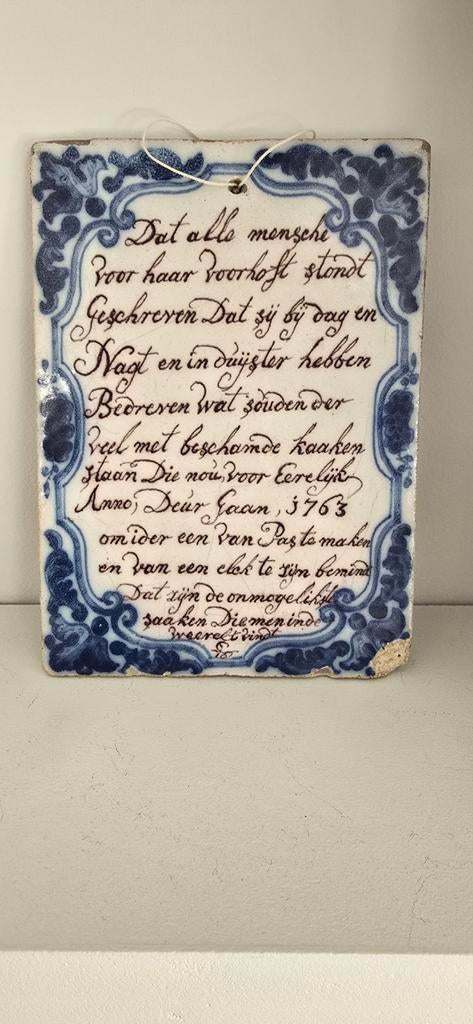 Dat alle mensche
voor haar voorhoft stondt
Geschreven Dat sij bij dag en
Nagt en in duijster hebben
Bedreven wat souden der
veel met beschamde kaaken
staan Die nou voor Eerelijk
Anno, Deur Gaan, 1763
om ider een van Pas te maken
en van een elck te zijn bemind
Dat zijn de onmogelijkste
saaken Die men in de
weerelt vindt